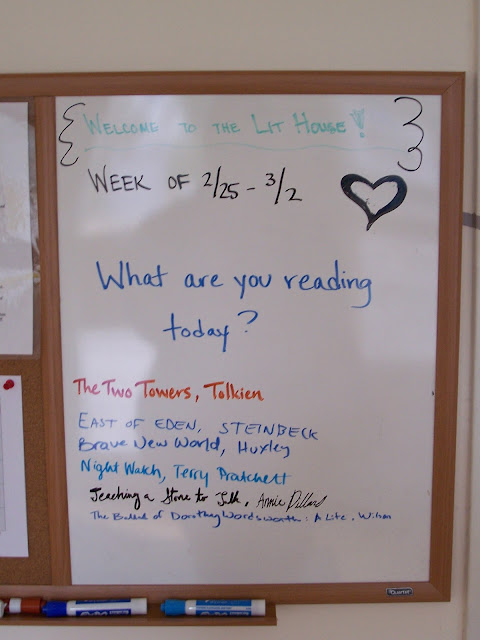 WELCOME TO THE LIT HOUSE!
WEEK OF 2/25 - 3/2
What are you reading
today?
The Two Towers, Tolkien
EAST OF EDEN, STEINBECK
Brave New World, Huxley
Night Watch, Terry Pratchett
Teaching a Stone to Talk, Annie Dillard
The Ballad of Dorothy Wordsworth: A Life, Wilson
Quartet